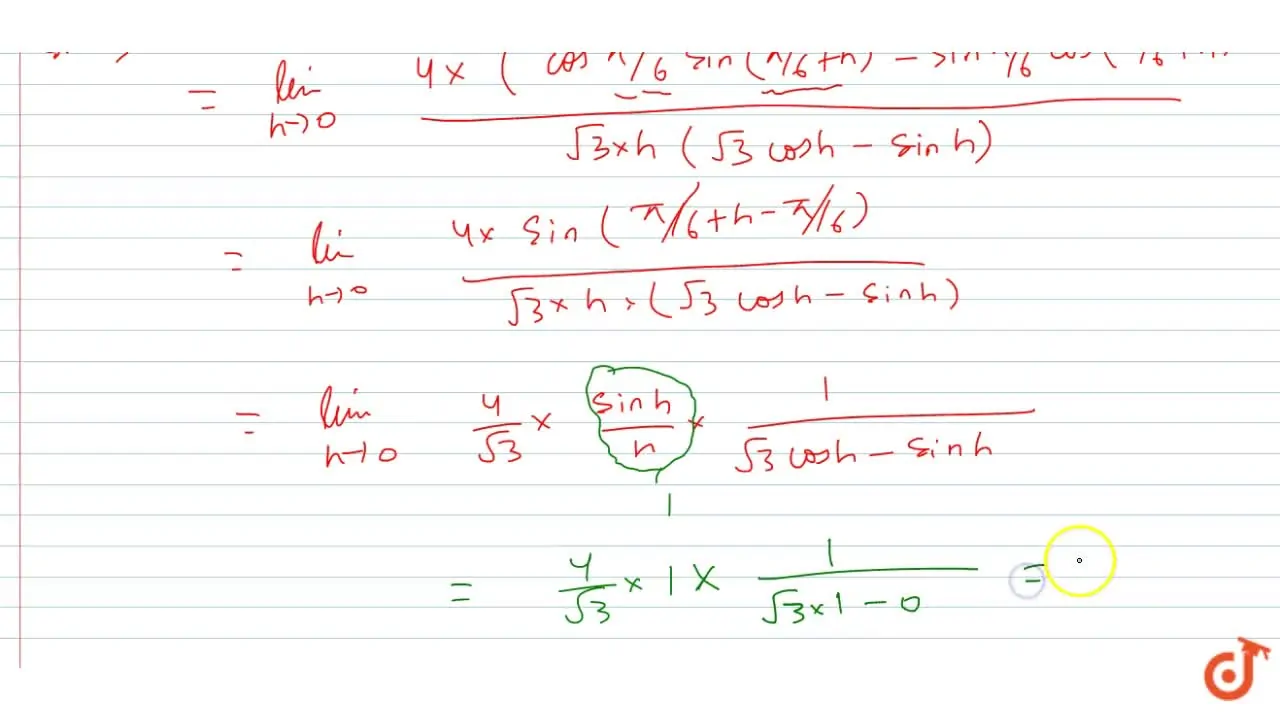 = lim h→0 4× ( cos π/6 sin(π/6+h) – sin π/6 cos(
√3×h ( √3 cosh – sinh)
= lim h→0 4× sin ( π/6+h–π/6)
√3× h × ( √3 cosh – sinh)
= lim h→0 4/√3 × sinh/h × 1/(√3 cosh – sinh)
1
= 4/√3 × 1 × 1/(√3×1 – 0) =